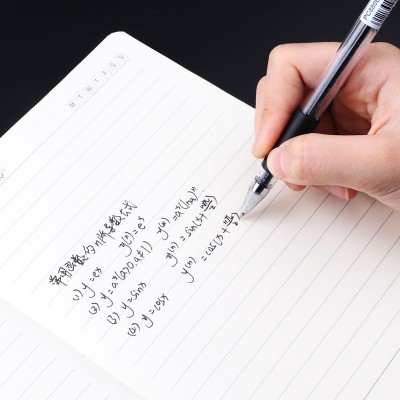 M T W T F S S
常用函数的n阶导数公式
(1) y=eˣ y⁽ⁿ⁾=eˣ
(2) y=aˣ(a>0, a≠1) y⁽ⁿ⁾=aˣ(lna)ⁿ
(3) y=sinx y⁽ⁿ⁾=sin(x+nπ/2)
(4) y=cosx y⁽ⁿ⁾=cos(x+nπ/2)